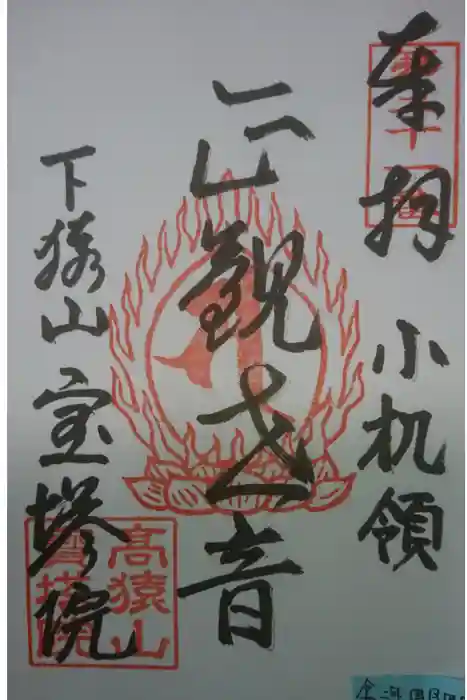 奉拝 小机領
正観世音
下猿山 宝塔院
高猿山
寳塔院